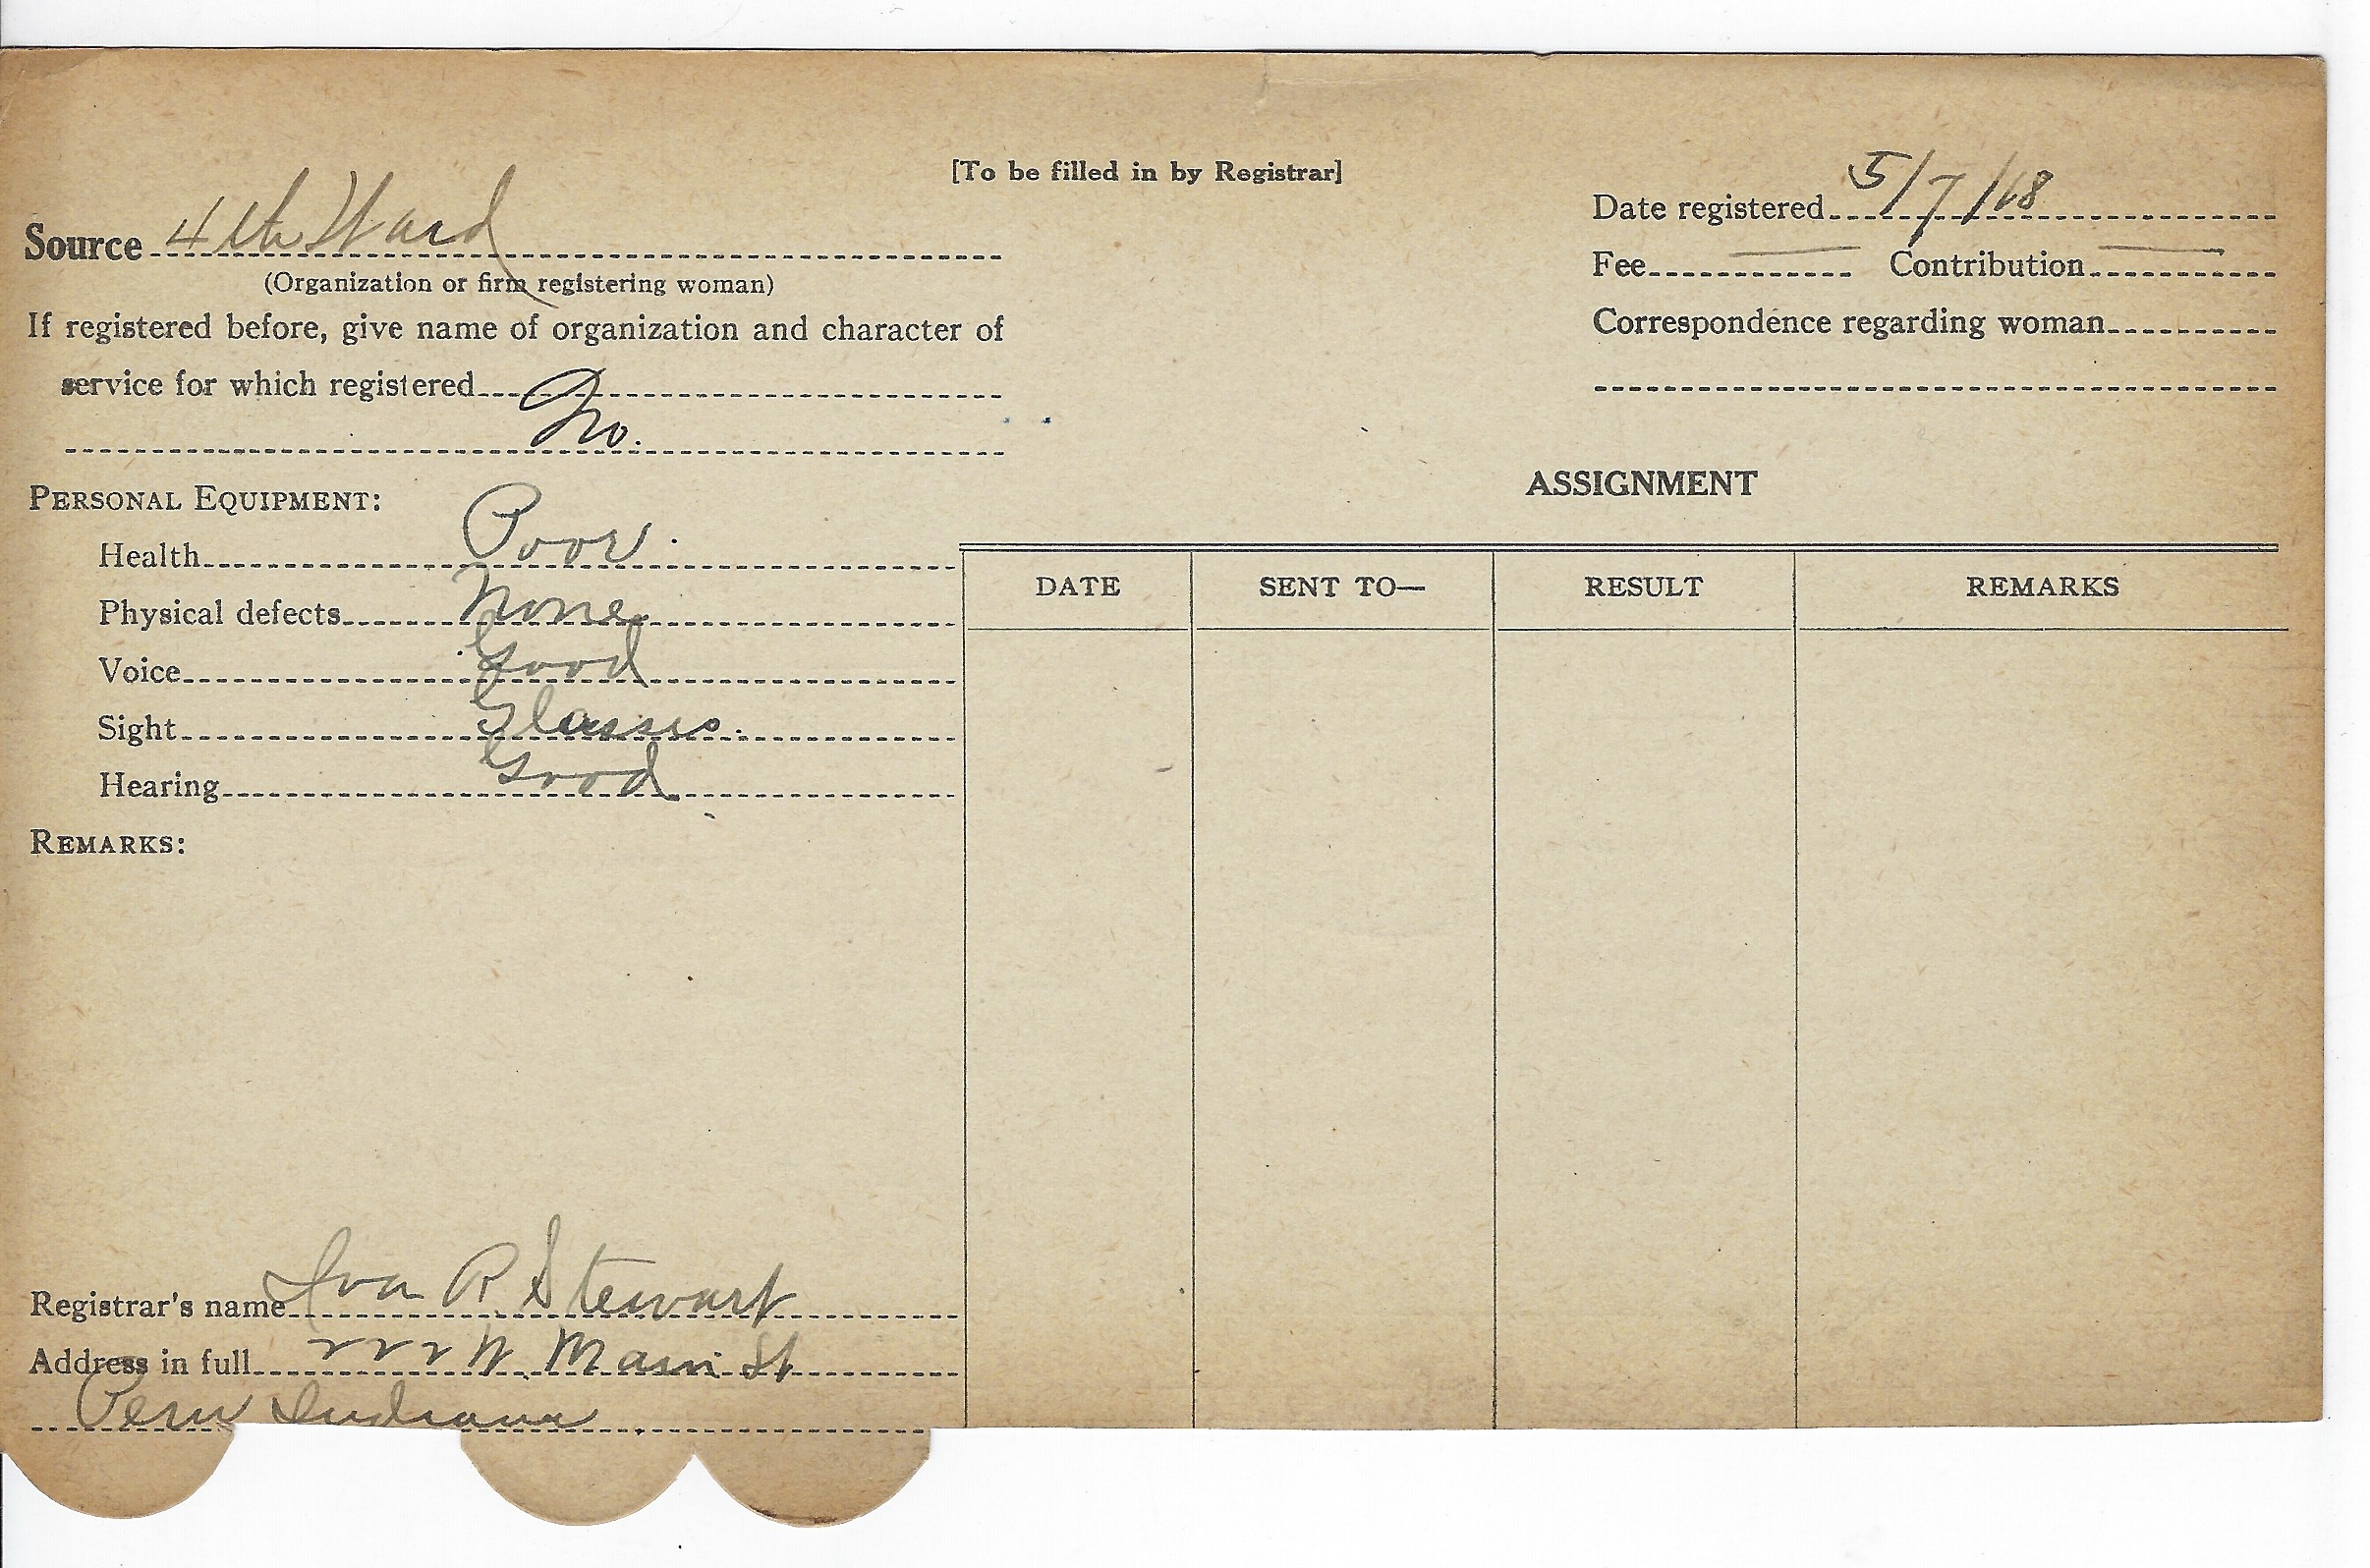 [To be filled in by Registrar]
Source 4th Ward
(Organization or firm registering woman)
If registered before, give name of organization and character of
service for which registered
No.
Date registered 5/7/18
Fee — Contribution —
Correspondence regarding woman
PERSONAL EQUIPMENT:
Health Poor.
Physical defects None
Voice Good
Sight Glasses.
Hearing Good
REMARKS:
ASSIGNMENT
DATE SENT TO— RESULT REMARKS
Registrar's name Iva R Stewart
Address in full 222 W. Main St
Peru Indiana